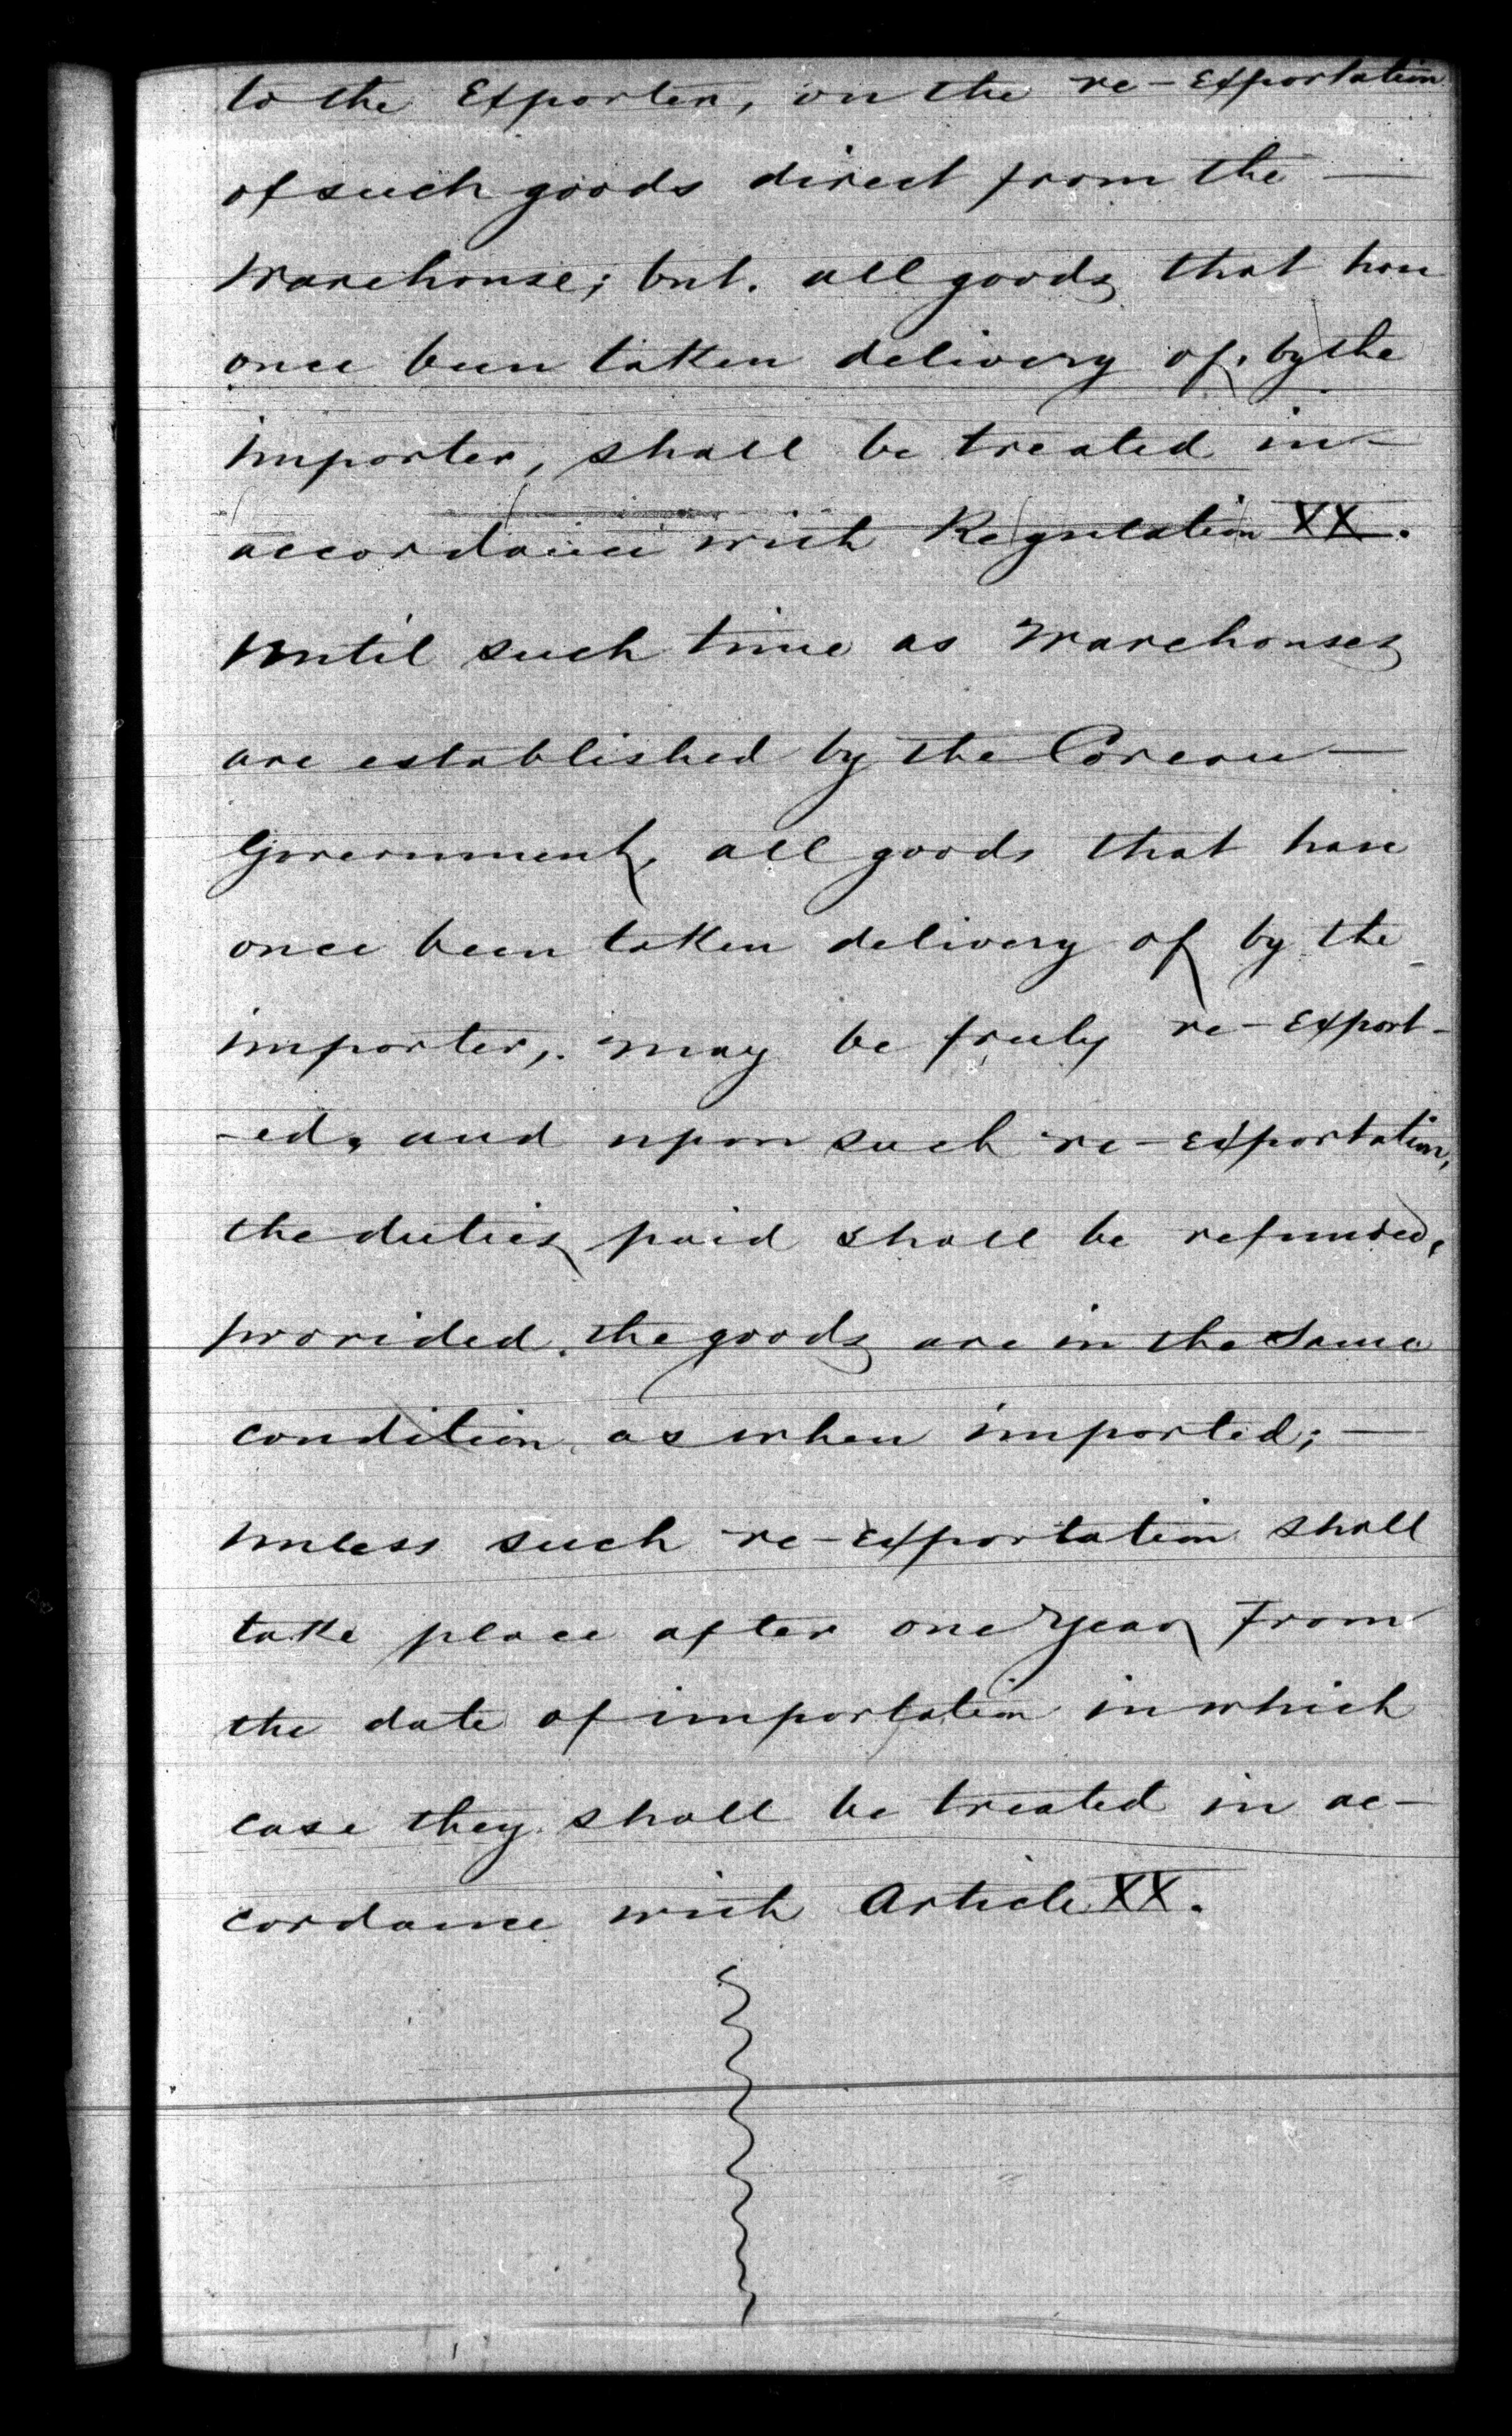 to the Exporter, on the re-exportation
of such goods direct from the —
Warehouse; but. all goods that have
once been taken delivery of, by the
importer, shall be treated in —
accordance with Regulation XX.
Until such time as Warehouses
are established by the Corean —
Government, all goods that have
once been taken delivery of by the
importer, may be freely re-export-
-ed, and upon such re-exportation,
the duties paid shall be refunded,
provided. the goods are in the same
condition as when imported; —
unless such re-exportation shall
take place after one year from
the date of importation in which
case they shall be treated in ac-
cordance with Article XX.